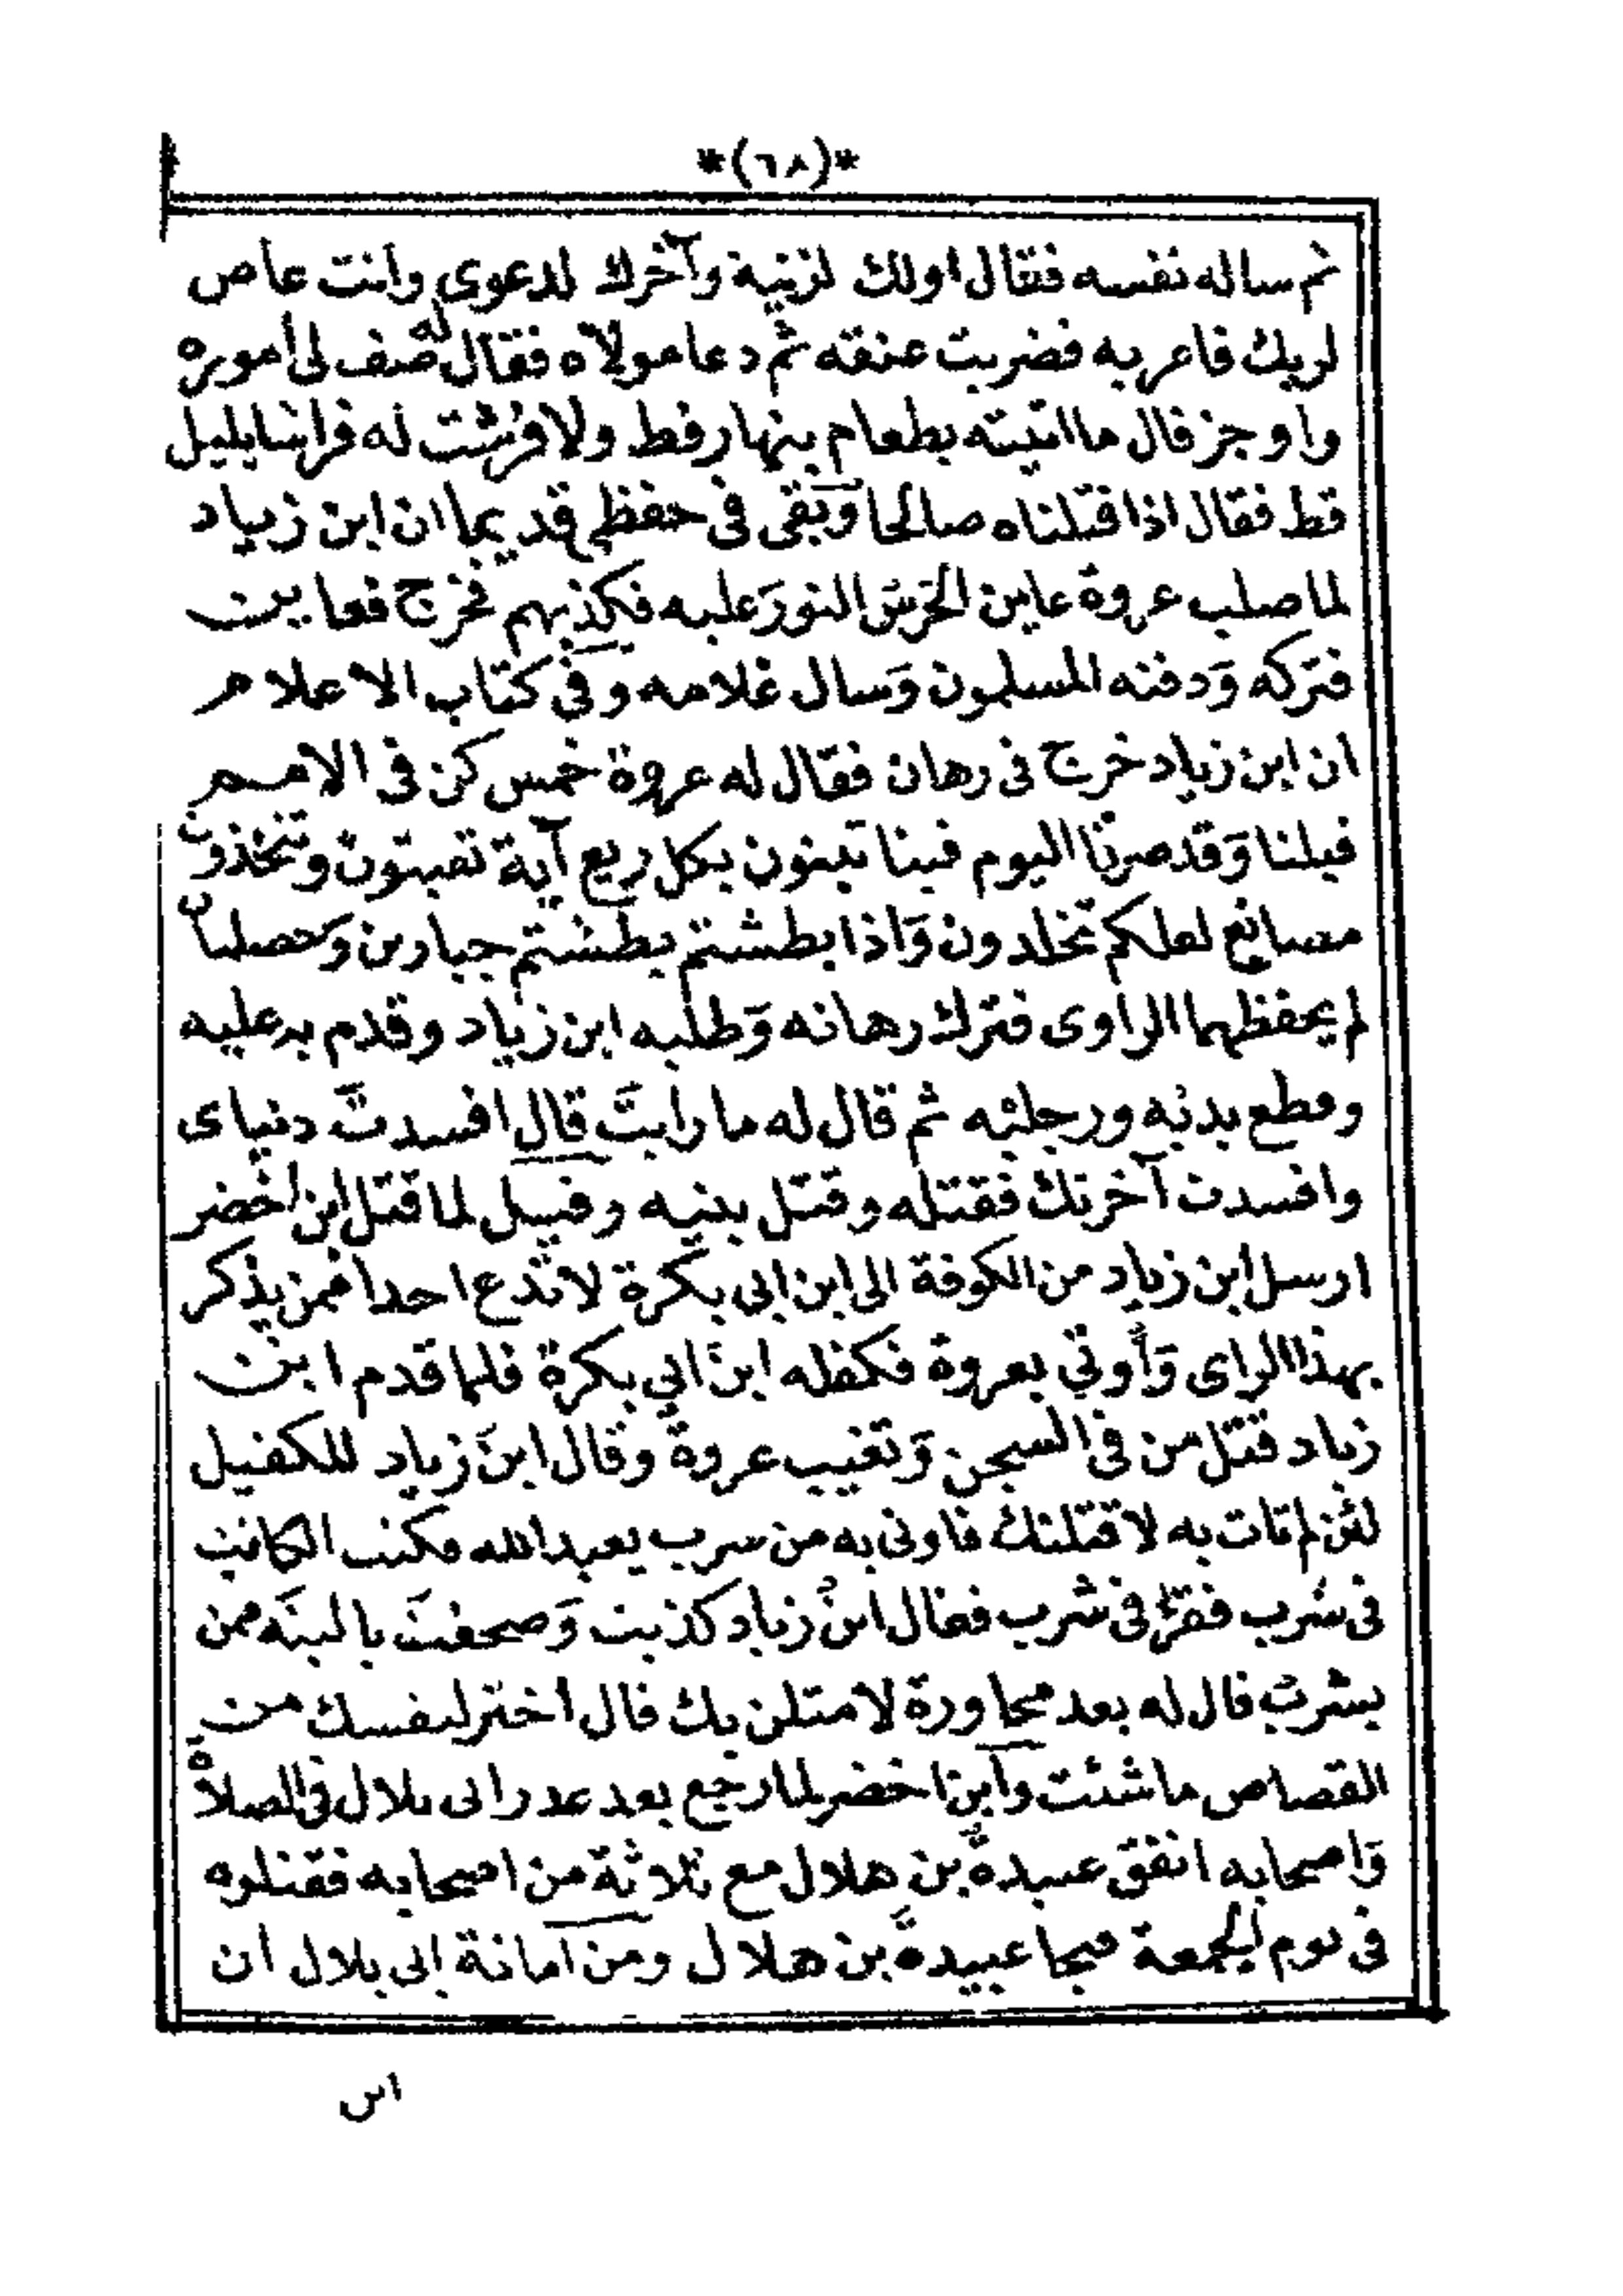 *(٦٨)*
ثم ساله نفسه فقال اولك لزنية وآخرك لدعوى وانت عاص
لربك فامر به فضربت عنقه ثم دعا مولاه فقال له صف لى أموره
واوجز قال ما اتيته بطعام بنهار قط ولا فرشت له فراشا بليل
قط فقال اذا قتلناه صالحا وَبقى فى حفظى قديما ان ابن زياد
لما صلب عروة عاين الحَرَسُ النورَ عليه فكذبهم فخرج فعاين
فتركه وَدفنه المسلمون وَسال غلامه وفى كتاب الاعلام
ان ابن زياد خرج فى رهان فقال له عروة خمس كن فى الامم
قبلنا وَقد صرنا اليوم فينا تبنون بكل ريع آية تعبثون وتتخذون
مصانع لعلكم تخلدون وَاذا بطشتم بطشتم جبارين وخصلتان
لم يحفظهما الراوى فترك رهانه وَطلبه ابن زياد وقدم به عليه
وقطع يديه ورجليه ثم قال له ما رايتَ قال افسدتَ دنياى
وافسدت آخرتك فقتله وقتل بنيه وقيل لما قتل ابن اخضر
ارسل ابن زياد من الكوفة الى ابن ابى بكرة لا تدع احدا ممن يذكر
بهذا الراى وَأوتى بعروة فكفله ابن ابي بكرة فلما قدم ابن
زياد قتل من فى السجن وَتغيب عروة وقال ابن زياد للكفيل
لئن لم تات به لاقتلنك فاوتى به من سرب بعبد الله فكتب الكاتب
فى سَرب فقرئ فى شرب فقال ابن زياد كذبت وَصحفتَ ياليته ممن
يشرب قال له بعد محاورة لامثلن بك قال اختر لنفسك من
القصاص ما شئت وابن اخضر لما رجع بعد غدر ابى بلال فى الصلاة
وَاصحابه اتفق عبيدة بن هلال مع ثلاثة من اصحابه فقتلوه
فى يوم الجمعة فنجا عبيدة بن هلال ومن امانة ابى بلال ان
ابن